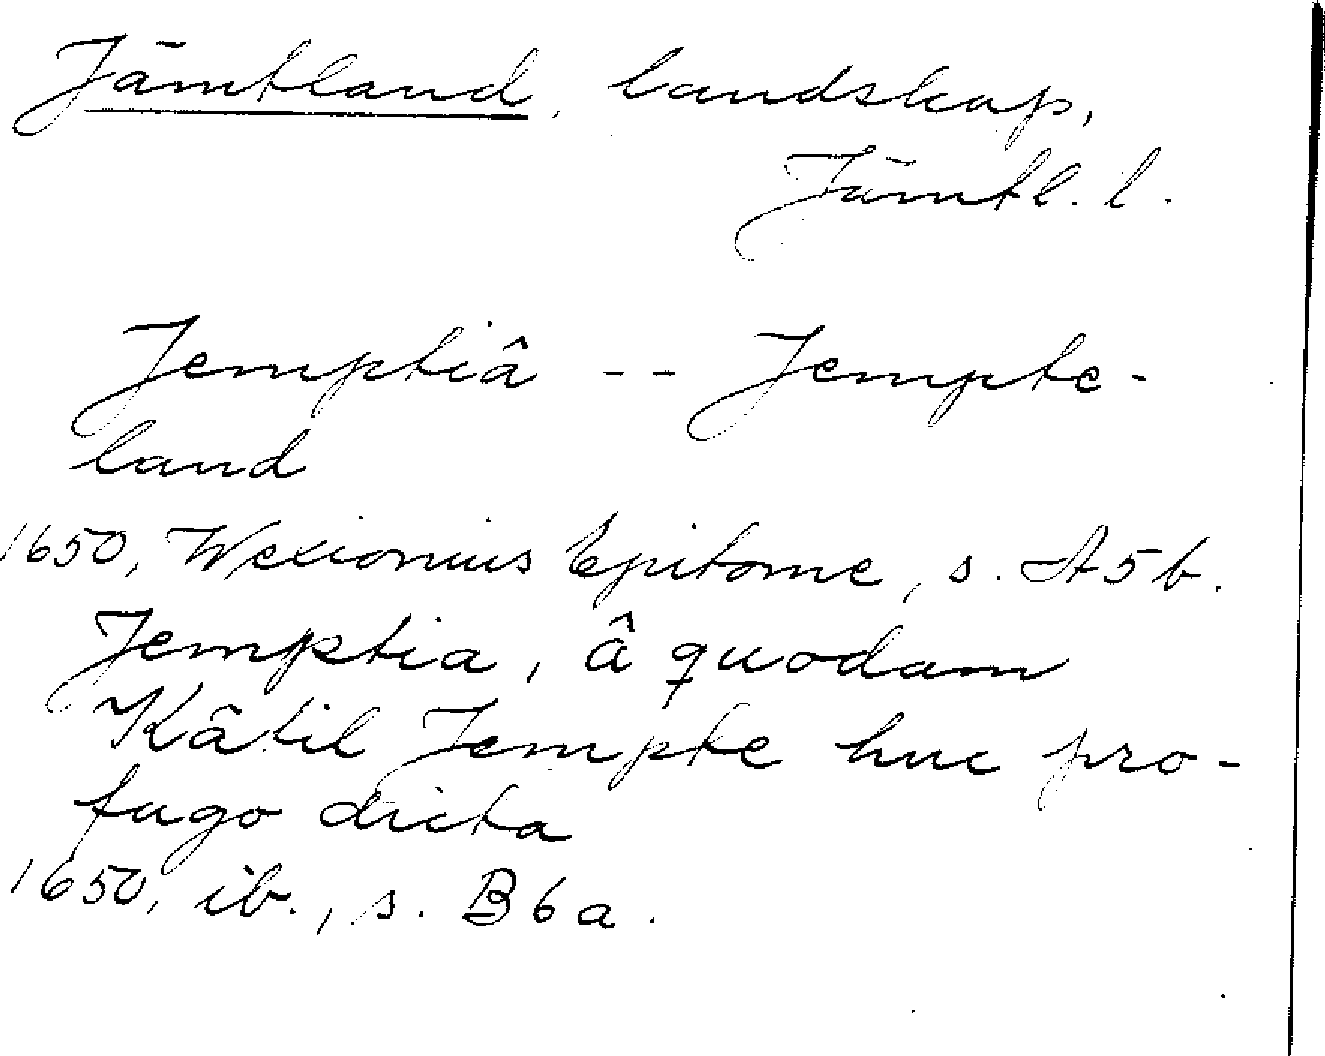 Jämtland, landskap,
Jämtl. l.
Jemptiâ -- Jempte-
land
1650, Wexionius Epitome, s. A5b.
Jemptia, â quodam
Kâtil Jempte huc pro-
fugo dicta
1650, ib., s. B6a.